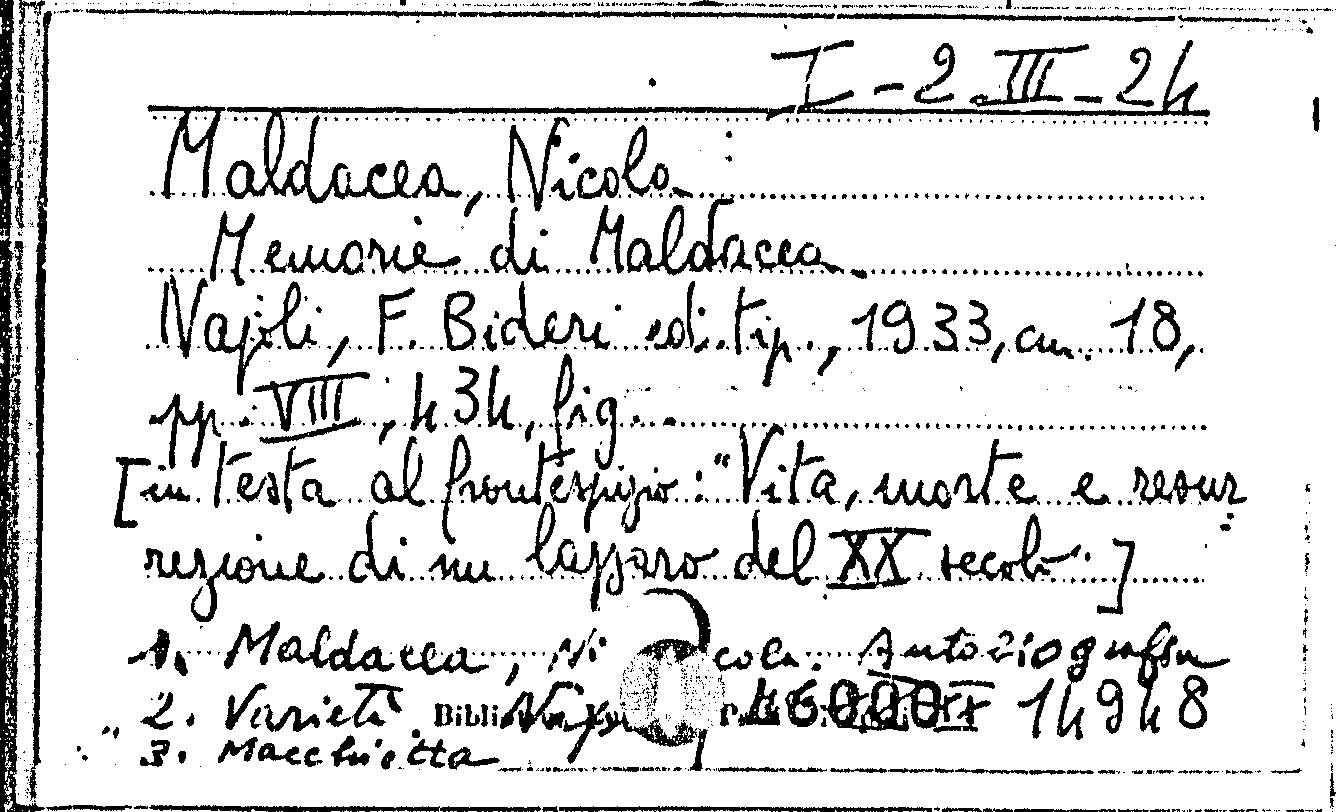 I-2.III-24
Maldacea, Nicola
Memorie di Maldacea.
Napoli, F. Bideri ed. tip., 1933, cm. 18,
pp. VIII, 434, fig.
[in testa al frontespizio: "Vita, morte e resur
rezione di nu lazzaro del XX secolo".]
1. Maldacea, Nicola. Autobiografia
2. Varietà. 14948
3. Macchietta